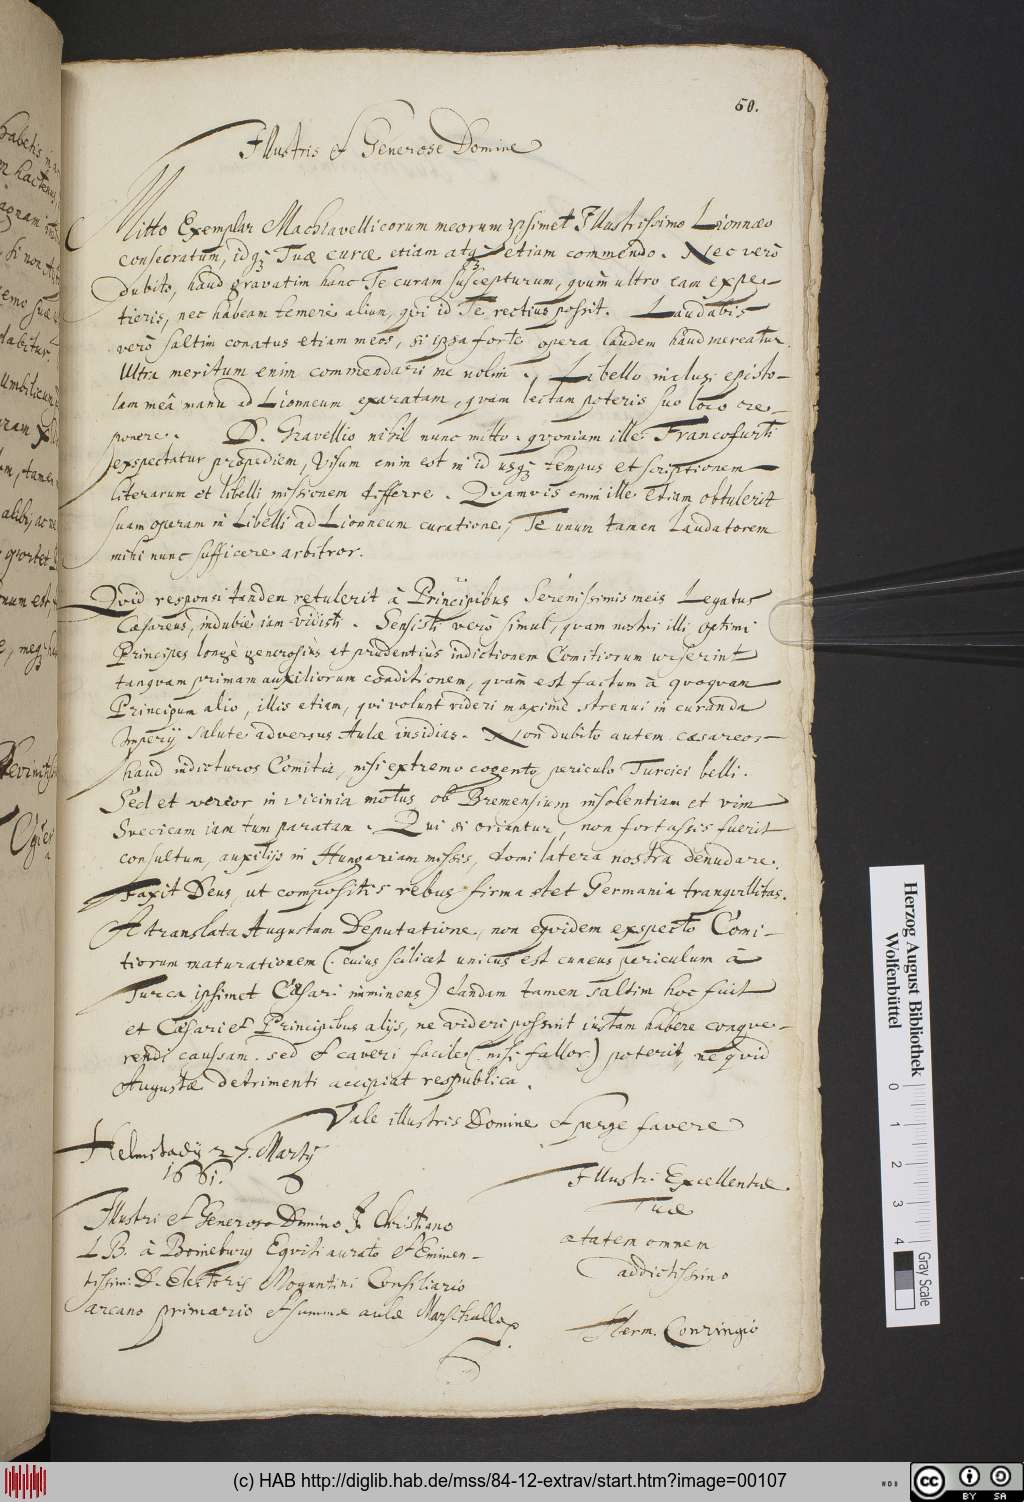 50.
Illustris et Generose Domine
Mitto Exemplar Machiavellicorum meorum ipsimet Illustrissimo Lionnæo
consecratum, idq; Tuæ curæ etiam atq; etiam commendo. Nec verò
dubito, haud gravatim hanc Te curam suscepturum, qvùm ultro eam expe-
tieris, nec habeam temerè alium, qvi id Te rectius possit. Laudabis
verò saltim conatus etiam meos, si ipsa forte opera laudem haud mereatur.
Ultra meritum enim commendari me nolim. Libello inclusi episto-
lam meâ manu ad Lionneum exaratam, qvam lectam poteris suo loco re-
ponere. D. Gravellio nihil nunc mitto. qvoniam ille Francofurti
exspectatur propediem, Visum enim est in id usq; tempus et scriptionem
literarum et libelli missionem differre. Qvamvis enim ille etiam obtulerit
suam operam in Libelli ad Lionneum curatione, Te unum tamen laudatorem
mihi nunc sufficere arbitror.
Qvid responsi tandem retulerit à Principibus Serenissimis meis Legatus
Cæsareus, indubiè iam vidisti. Sensisti verò simul, qvam nostri illi optimi
Principes longe generosius et prudentius indictionem Comitiorum urserint
tanqvam primam auxiliorum conditionem, qvàm est factum à qvoqvam
Principum alio, illis etiam, qvi volunt videri maximè strenui in curanda
Imperij salute adversus Aulæ insidias. Non dubito autem cæsareos
haud indicturos Comitia, nisi extremo cogente periculo Turcici belli.
Sed et vereor in vicinia motus ob Bremensium insolentiam et vim
Svecicam iam tum paratam. Qui si oriantur, non fortassis fuerit
consultum, auxilijs in Hungariam missis, domi latera nostra denudare.
Faxit Deus, ut compositis rebus firma stet Germania tranqvillitas.
At translata Augustam Deputatione, non eqvidem exspecto Comi-
tiorum maturationem (: cuius scilicet unicus est cuneus periculum à
Turca ipsimet Cæsari imminens) dandam tamen saltim hoc fuit
et Cæsari et Principibus alijs, ne videri possint iustam habere conqve-
rendi caussam. sed et caveri facile (: nisi fallor:) poterit, ne qvid
Augustæ detrimenti accipiat respublica.
Vale illustris Domine et perge favere
Helmstadij 27. Martij
1661.
Illustri Excellentiæ
Tuæ
ætatem omnem
addictissimo
Herm. Conringio
Illustri et Generoso Domino J. Christiano
L B. à Boineburg Eqviti aurato et Eminen-
tissimi D. Electoris Moguntini Consiliario
arcano primario et summæ aulæ Marschallo
Herzog August Bibliothek
Wolfenbüttel
0 1 2 3 4
Gray Scale
(c) HAB http://diglib.hab.de/mss/84-12-extrav/start.htm?image=00107
WDB
cc BY SA